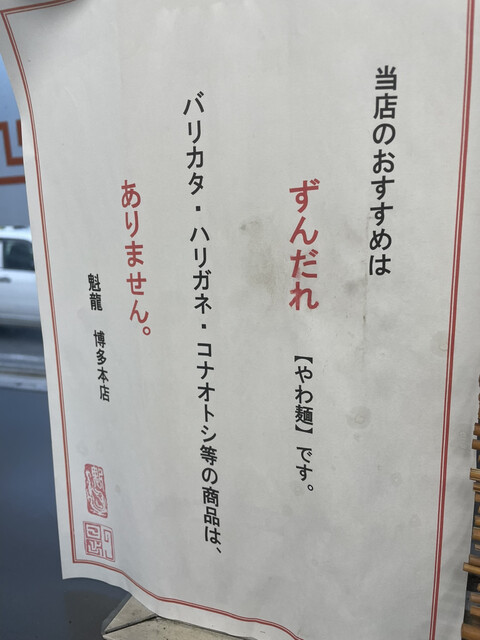 当店のおすすめは
ずんだれ【やわ麺】です。
バリカタ・ハリガネ・コナオトシ等の商品は、
ありません。
魁龍 博多本店